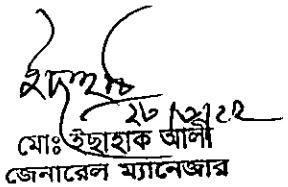 ২৮/৩/২২
মোঃ ইছাহাক আলী
জেনারেল ম্যানেজার